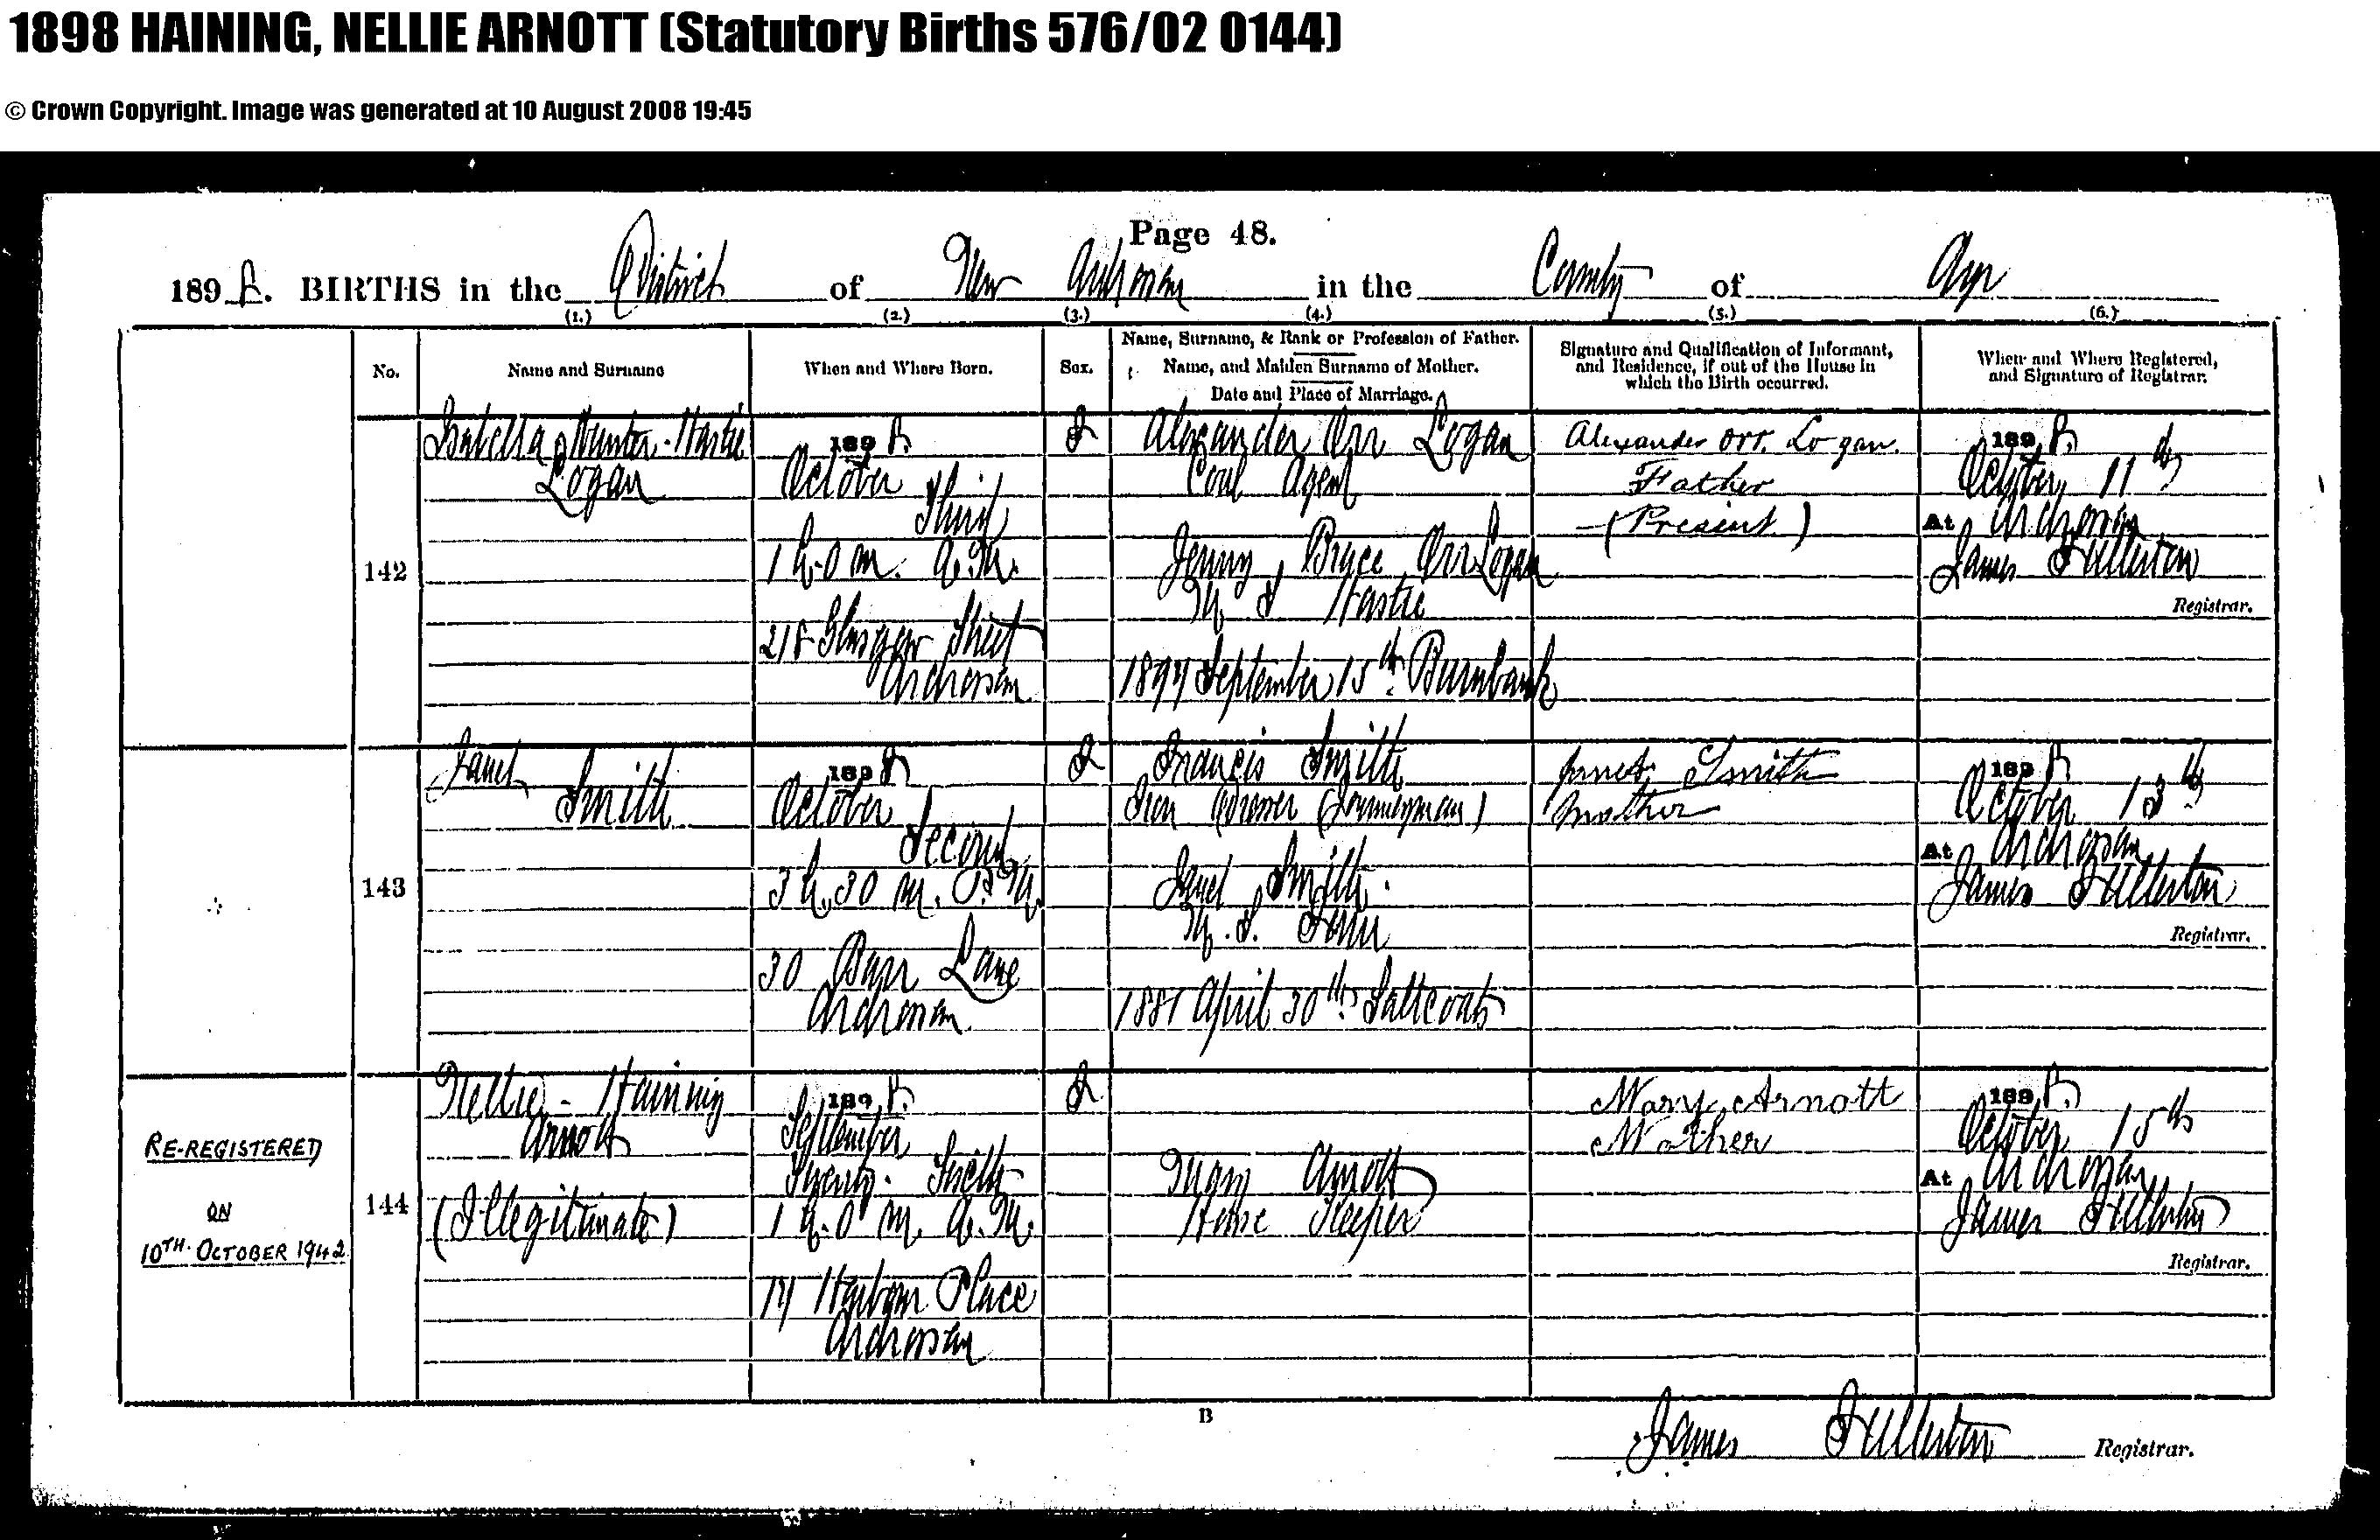 1898 HAINING, NELLIE ARNOTT (Statutory Births 576/02 0144)
© Crown Copyright. Image was generated at 10 August 2008 19:45
Page 48.
1898. BIRTHS in the District of New Ardrossan in the County of Ayr
(1.) (2.) (3.) (4.) (5.) (6.)
No.
Name and Surname
When and Where Born.
Sex.
Name, Surname, & Rank or Profession of Father.
Name, and Maiden Surname of Mother.
Date and Place of Marriage.
Signature and Qualification of Informant,
and Residence, if out of the House in
which the Birth occurred.
When and Where Registered,
and Signature of Registrar.
142
Isabella Hunter Hastie
Logan
1898.
October
Third
1 h. 0 m. A.M.
218 Glasgow Street
Ardrossan
F
Alexander Orr Logan
Coal Agent
Jenny Bruce Orr Logan
M. S. Hastie
1897 September 15th Burnbank
Alexander Orr. Logan.
Father
(Present)
1898.
October 11th
At Ardrossan
James Fullerton
Registrar.
143
Janet
Smith
1898
October
Second
3 h. 30 m. P.M.
30 Barr Lane
Ardrossan
F
Francis Smith
Iron Dresser (Journeyman)
Janet Smith
M. S.
1881 April 30th Saltcoats
Janet Smith
Mother
1898
October 13th
At Ardrossan
James Fullerton
Registrar.
RE-REGISTERED
ON
10TH OCTOBER 1942
144
Nellie - Haining
Arnott
(Illegitimate)
1898.
September
Twenty
1 h. 0 m. A.M.
17 Harbour Place
Ardrossan
F
Mary Arnott
House Keeper
Mary Arnott
Mother
1898.
October 15th
At Ardrossan
James Fullerton
Registrar.
B
James Fullerton Registrar.